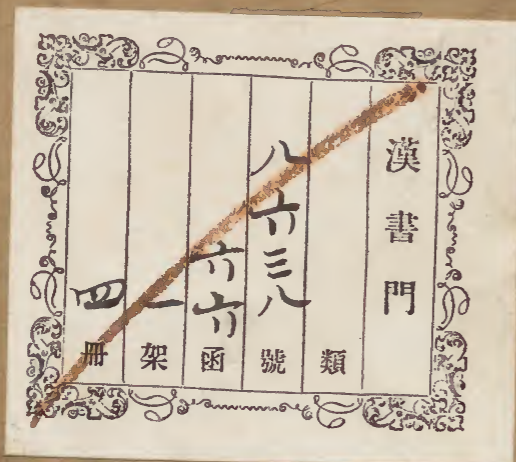 漢書門
類
八六三八號
六六函
一架
四冊